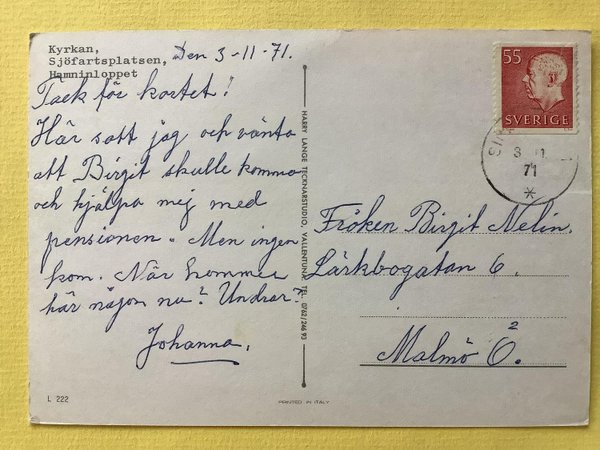 Kyrkan,
Sjöfartsplatsen,
Hamninloppet
Den 3-11-71.
Tack för kortet!
Här satt jag och vänta
att Birgit skulle komma
och hjälpa mej med
pensionen. Men ingen
kom. När kommer
här någon nu? Undrar?
Johanna.
L 222
HARRY LANGE TECKNARSTUDIO, VALLENTUNA, TEL. 0762/246 93
PRINTED IN ITALY
55
SVERIGE
3 11
71
Fröken Birgit Nelin.
Lärkbogatan 6.
Malmö Ö.